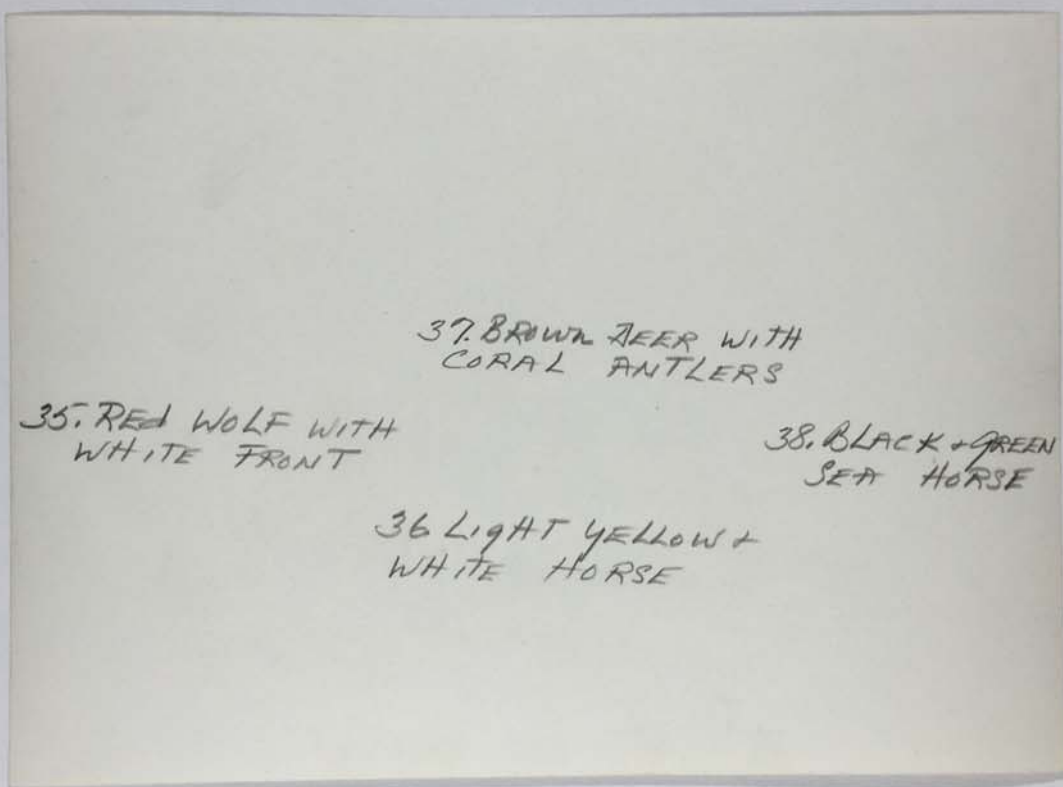 37. BROWN DEER WITH
CORAL ANTLERS
35. RED WOLF WITH
WHITE FRONT
38. BLACK + GREEN
SEA HORSE
36 LIGHT YELLOW +
WHITE HORSE